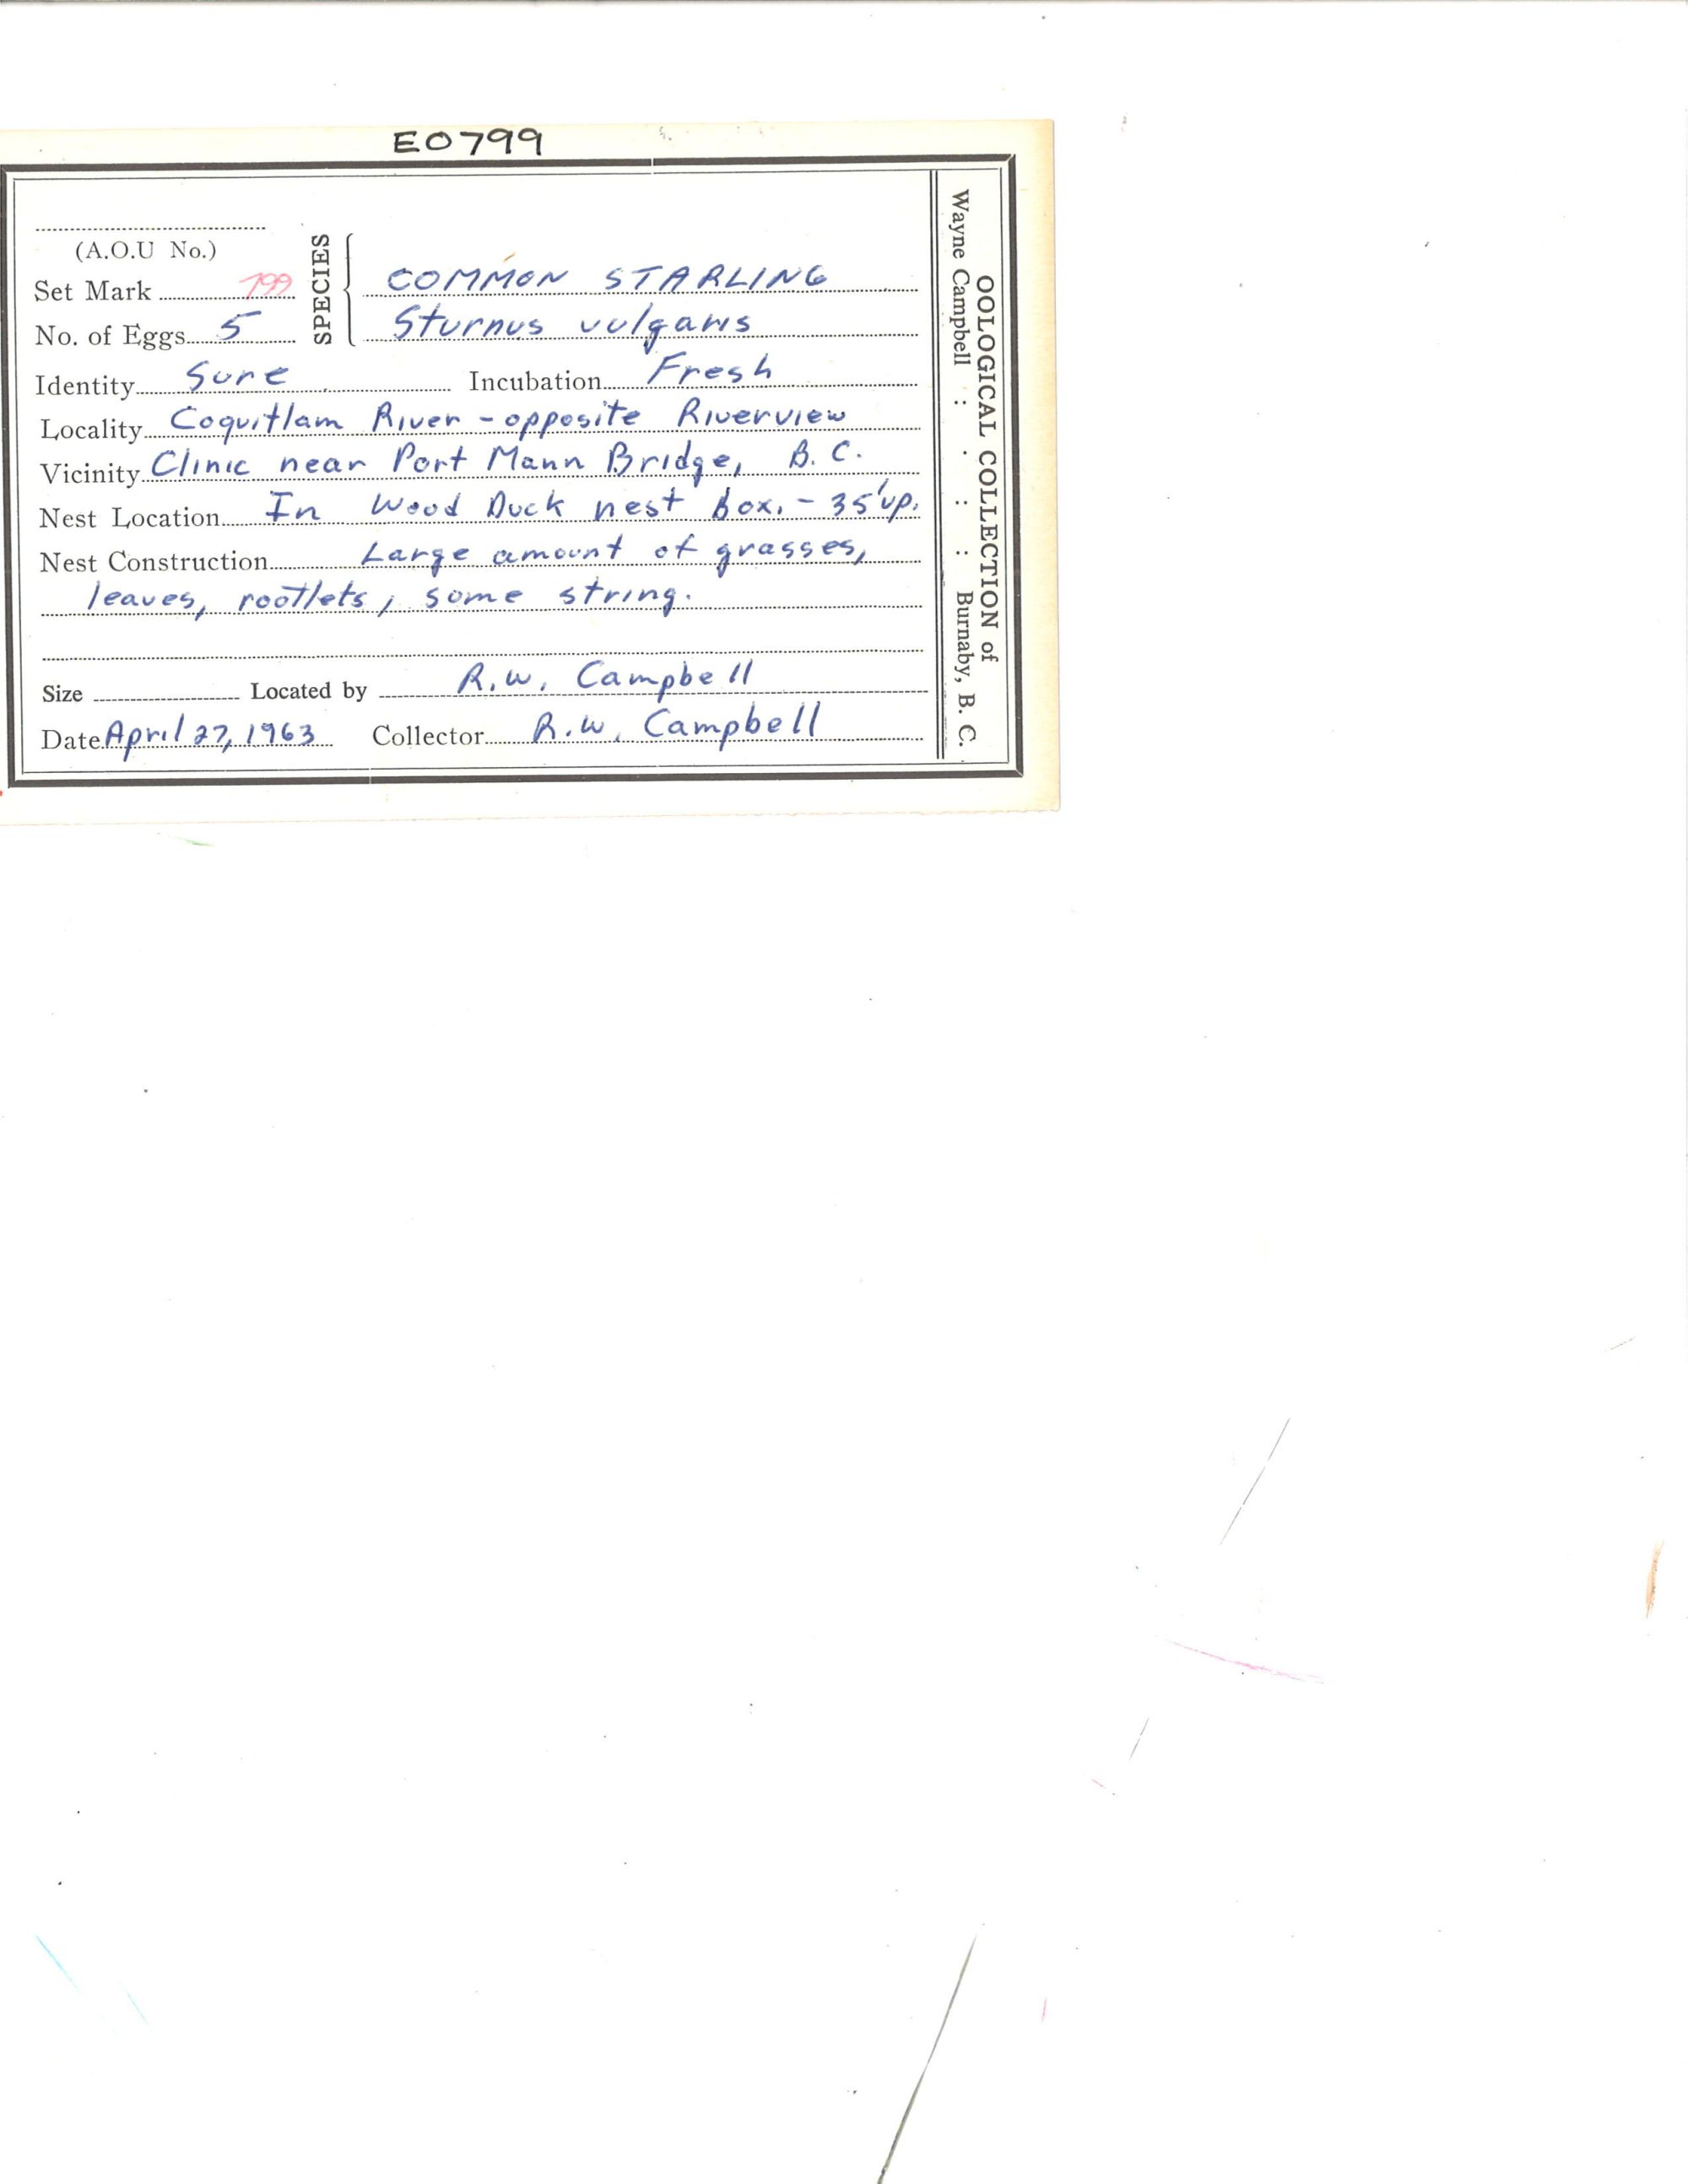 E0799
(A.O.U No.)
Set Mark 799
No. of Eggs 5
SPECIES
COMMON STARLING
Sturnus vulgaris
Identity Sure Incubation Fresh
Locality Coquitlam River - opposite Riverview
Vicinity Clinic near Port Mann Bridge, B. C.
Nest Location In Wood Duck nest box. - 35' up.
Nest Construction Large amount of grasses,
leaves, rootlets, some string.
Size Located by R.W. Campbell
Date April 27, 1963 Collector R.W. Campbell
OOLOGICAL COLLECTION of
Wayne Campbell : . : : Burnaby, B. C.